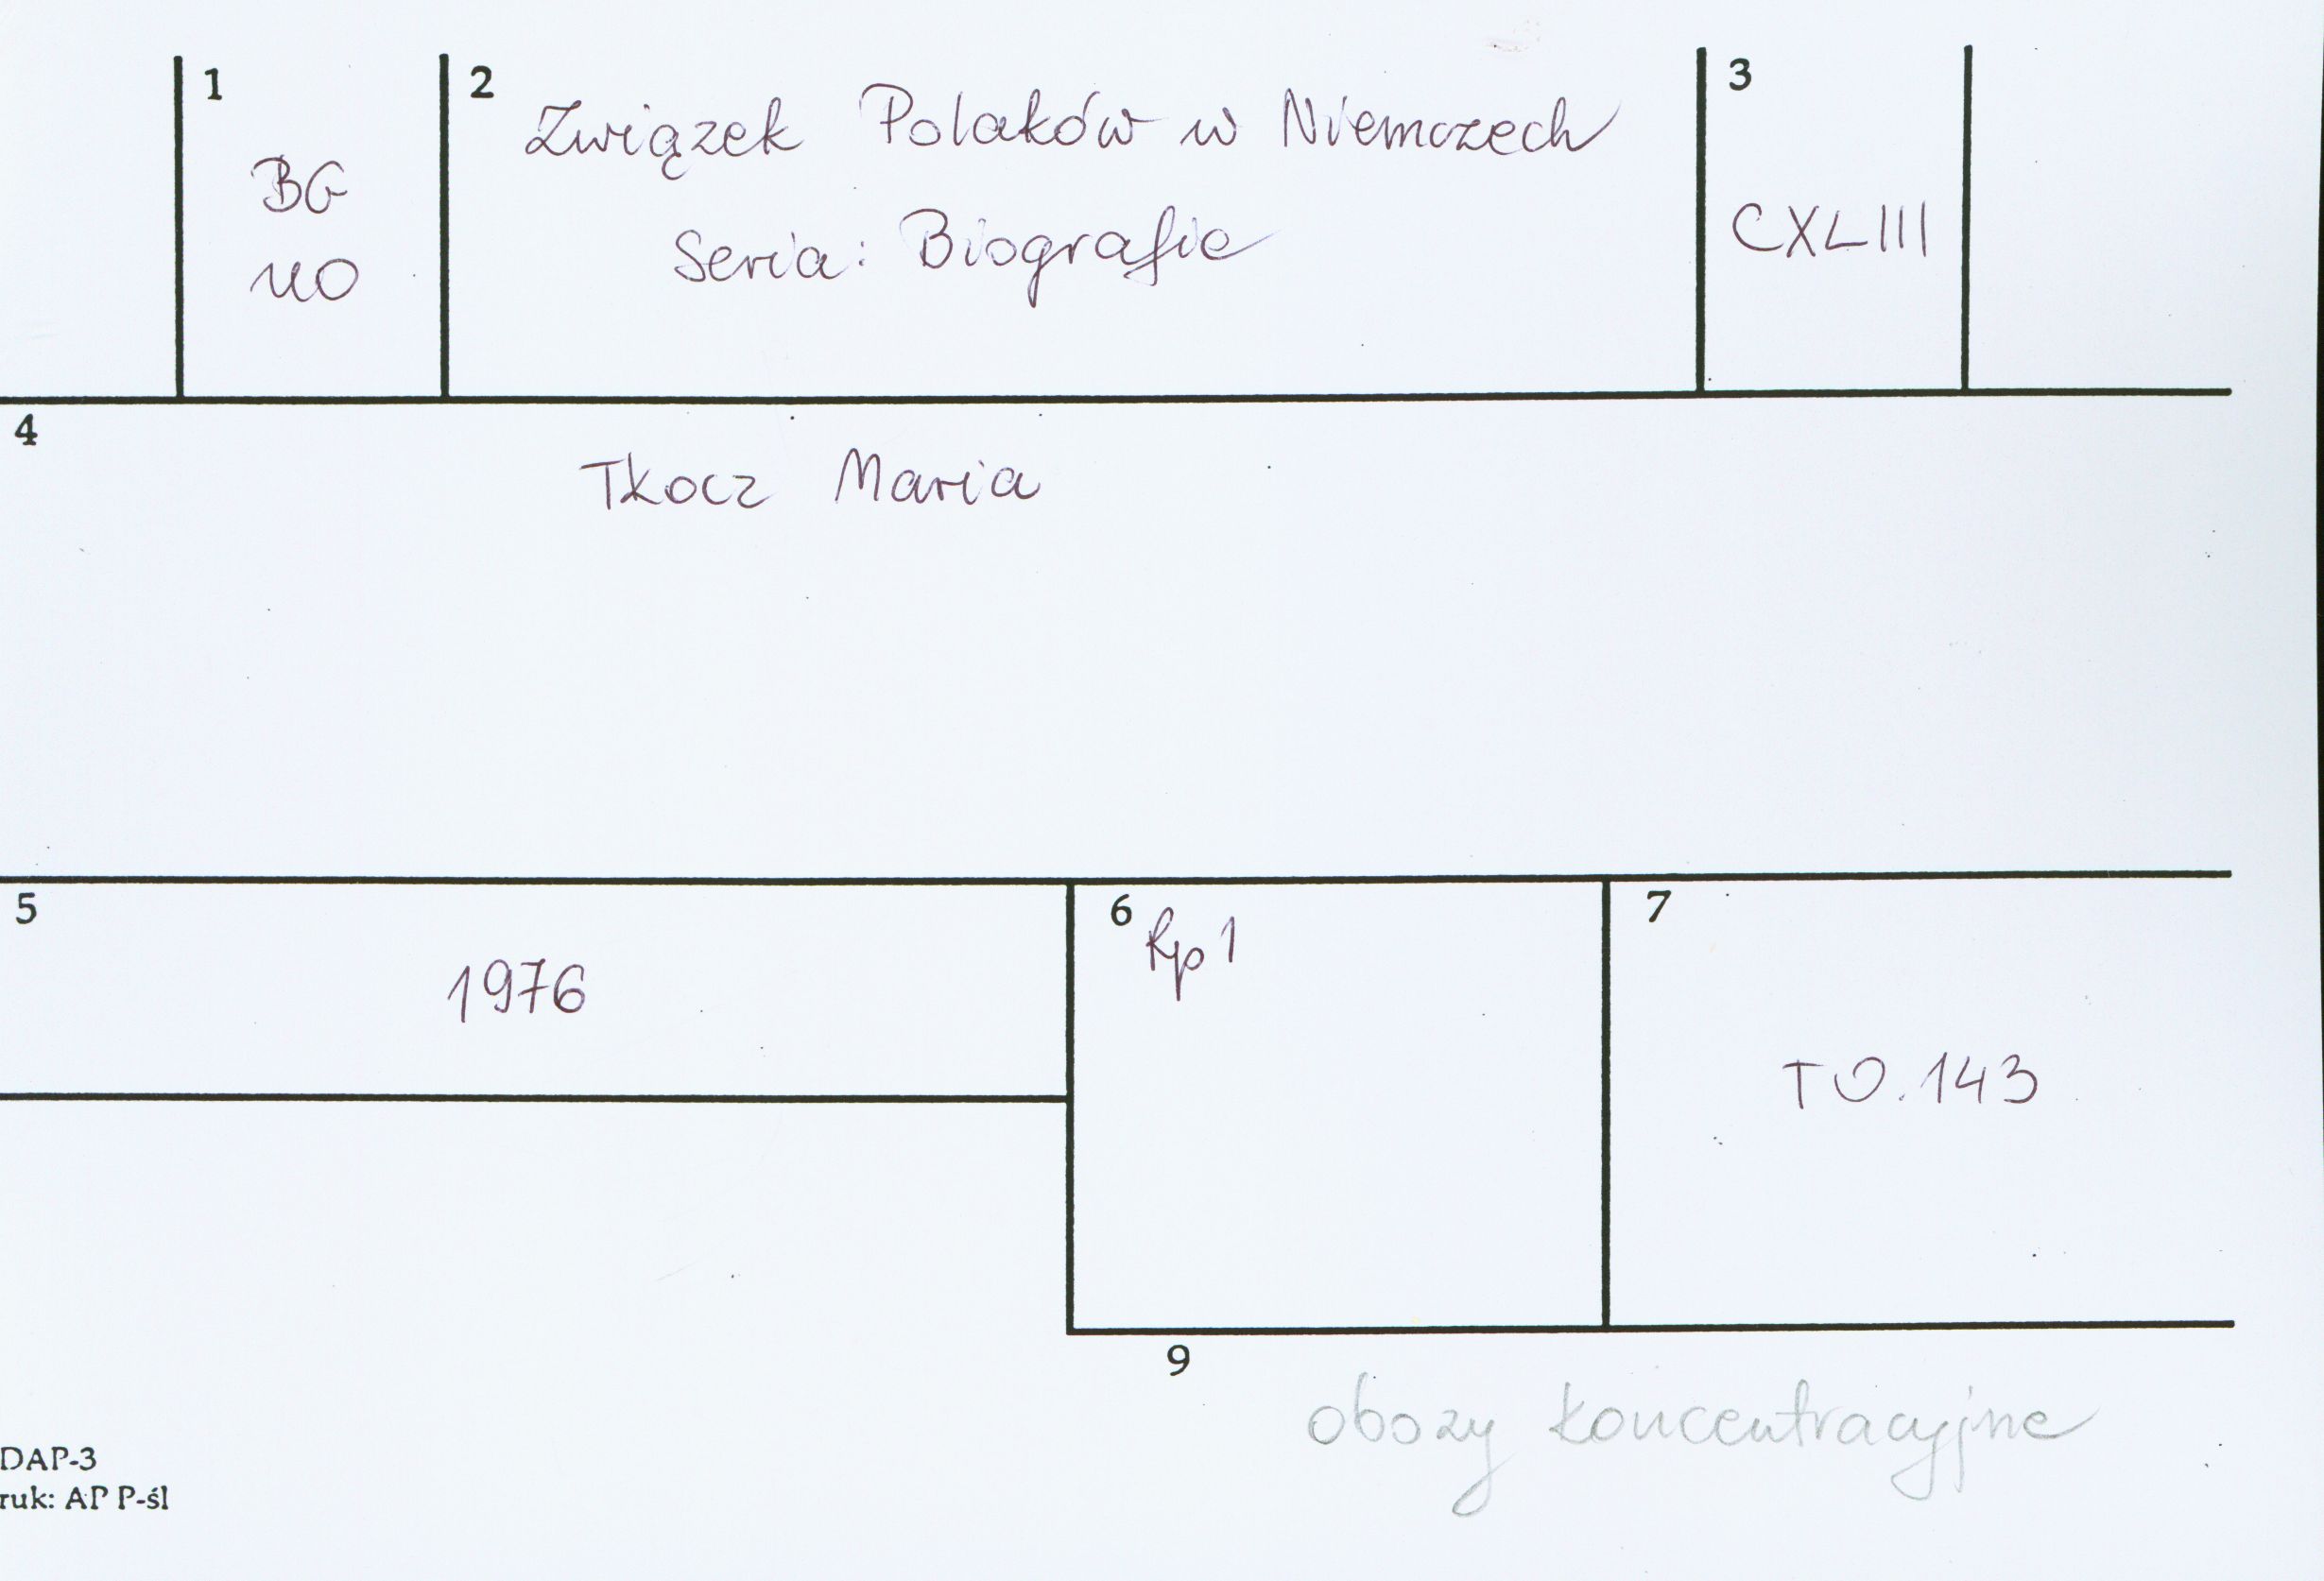 1
BG
UO
2
Związek Polaków w Niemczech
Seria: Biografie
3
CXLIII
4
Tkocz Maria
5
1976
6
Rp 1
7
TO.143
9
obozy koncentracyjne
DAP-3
ruk: AP P-śl